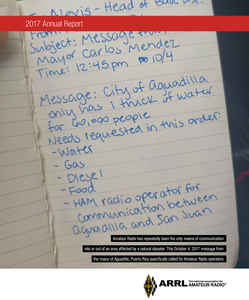 2017 Annual Report
Nevis - Head of
From:
Subject: Message from
Mayor Carlos Mendez
Time: 12:45pm 10/4
Message: City of Aguadilla
only has 1 truck of water
for 60,000 people
Needs requested in this order:
- Water
- Gas
- Diesel
- Food
- HAM radio operator for
communication between
aguadilla and San Juan
Amateur Radio has repeatedly been the only means of communication
into or out of an area affected by a natural disaster. This October 4, 2017 message from
the mayor of Aguadilla, Puerto Rico specifically called for Amateur Radio operators.
ARRL The national association for
AMATEUR RADIO®